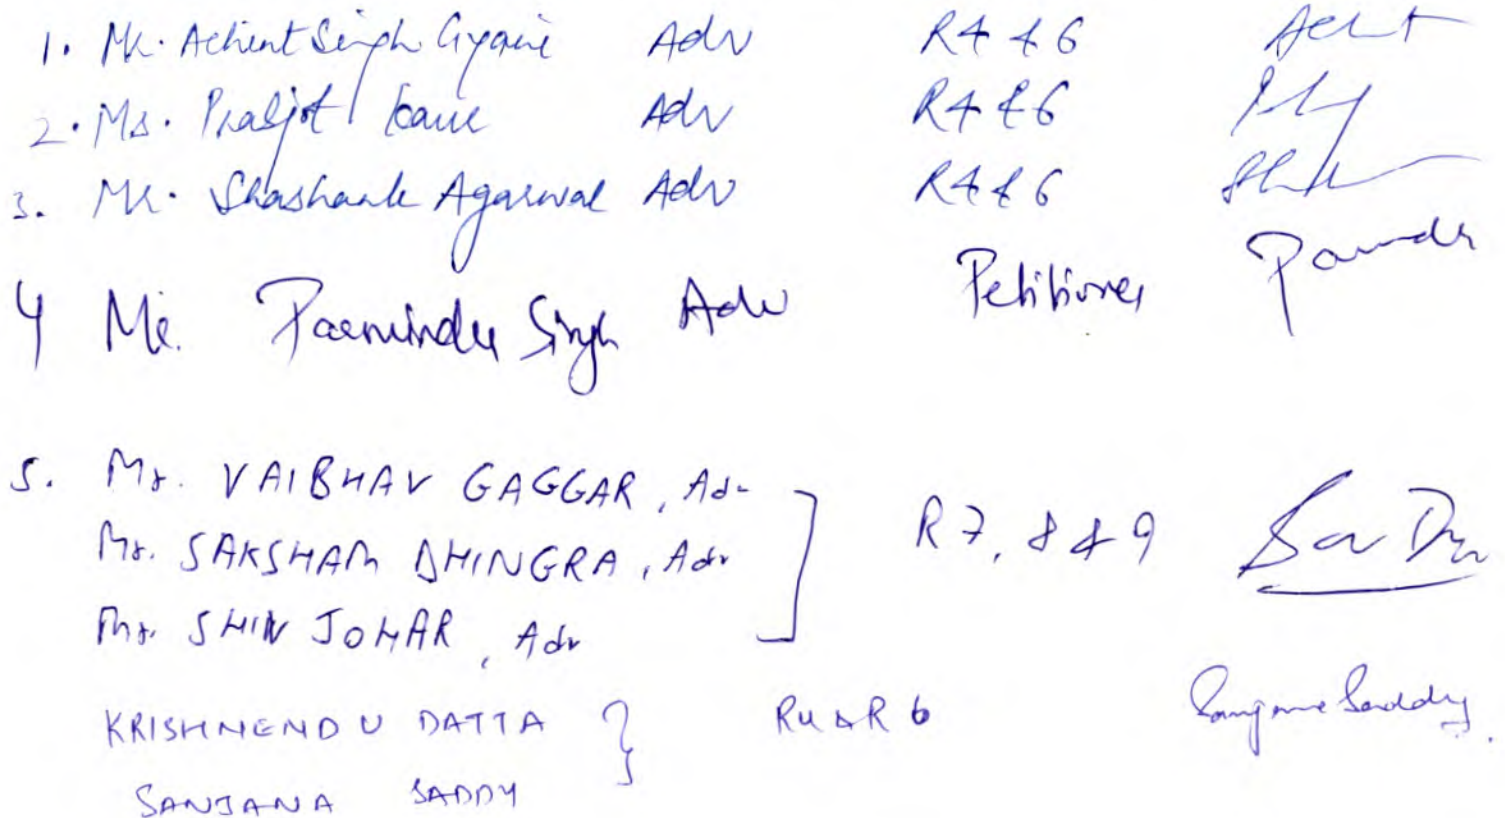 1. Mr. Achint Singh Gyani Adv R4 & 6
2. Ms. Prabjot Kaur Adv R4 & 6
3. Mr. Shashank Agarwal Adv R4 & 6
4 Mr. Parminder Singh Adv Petitioner
5. Mr. VAIBHAV GAGGAR, Adv
Mr. SAKSHAM DHINGRA, Adv R 7, 8 & 9
Mr. SHIN JOHAR, Adv
KRISHNENDU DATTA } R4 & R6 Sanjana Saddy.
SANJANA SADDY